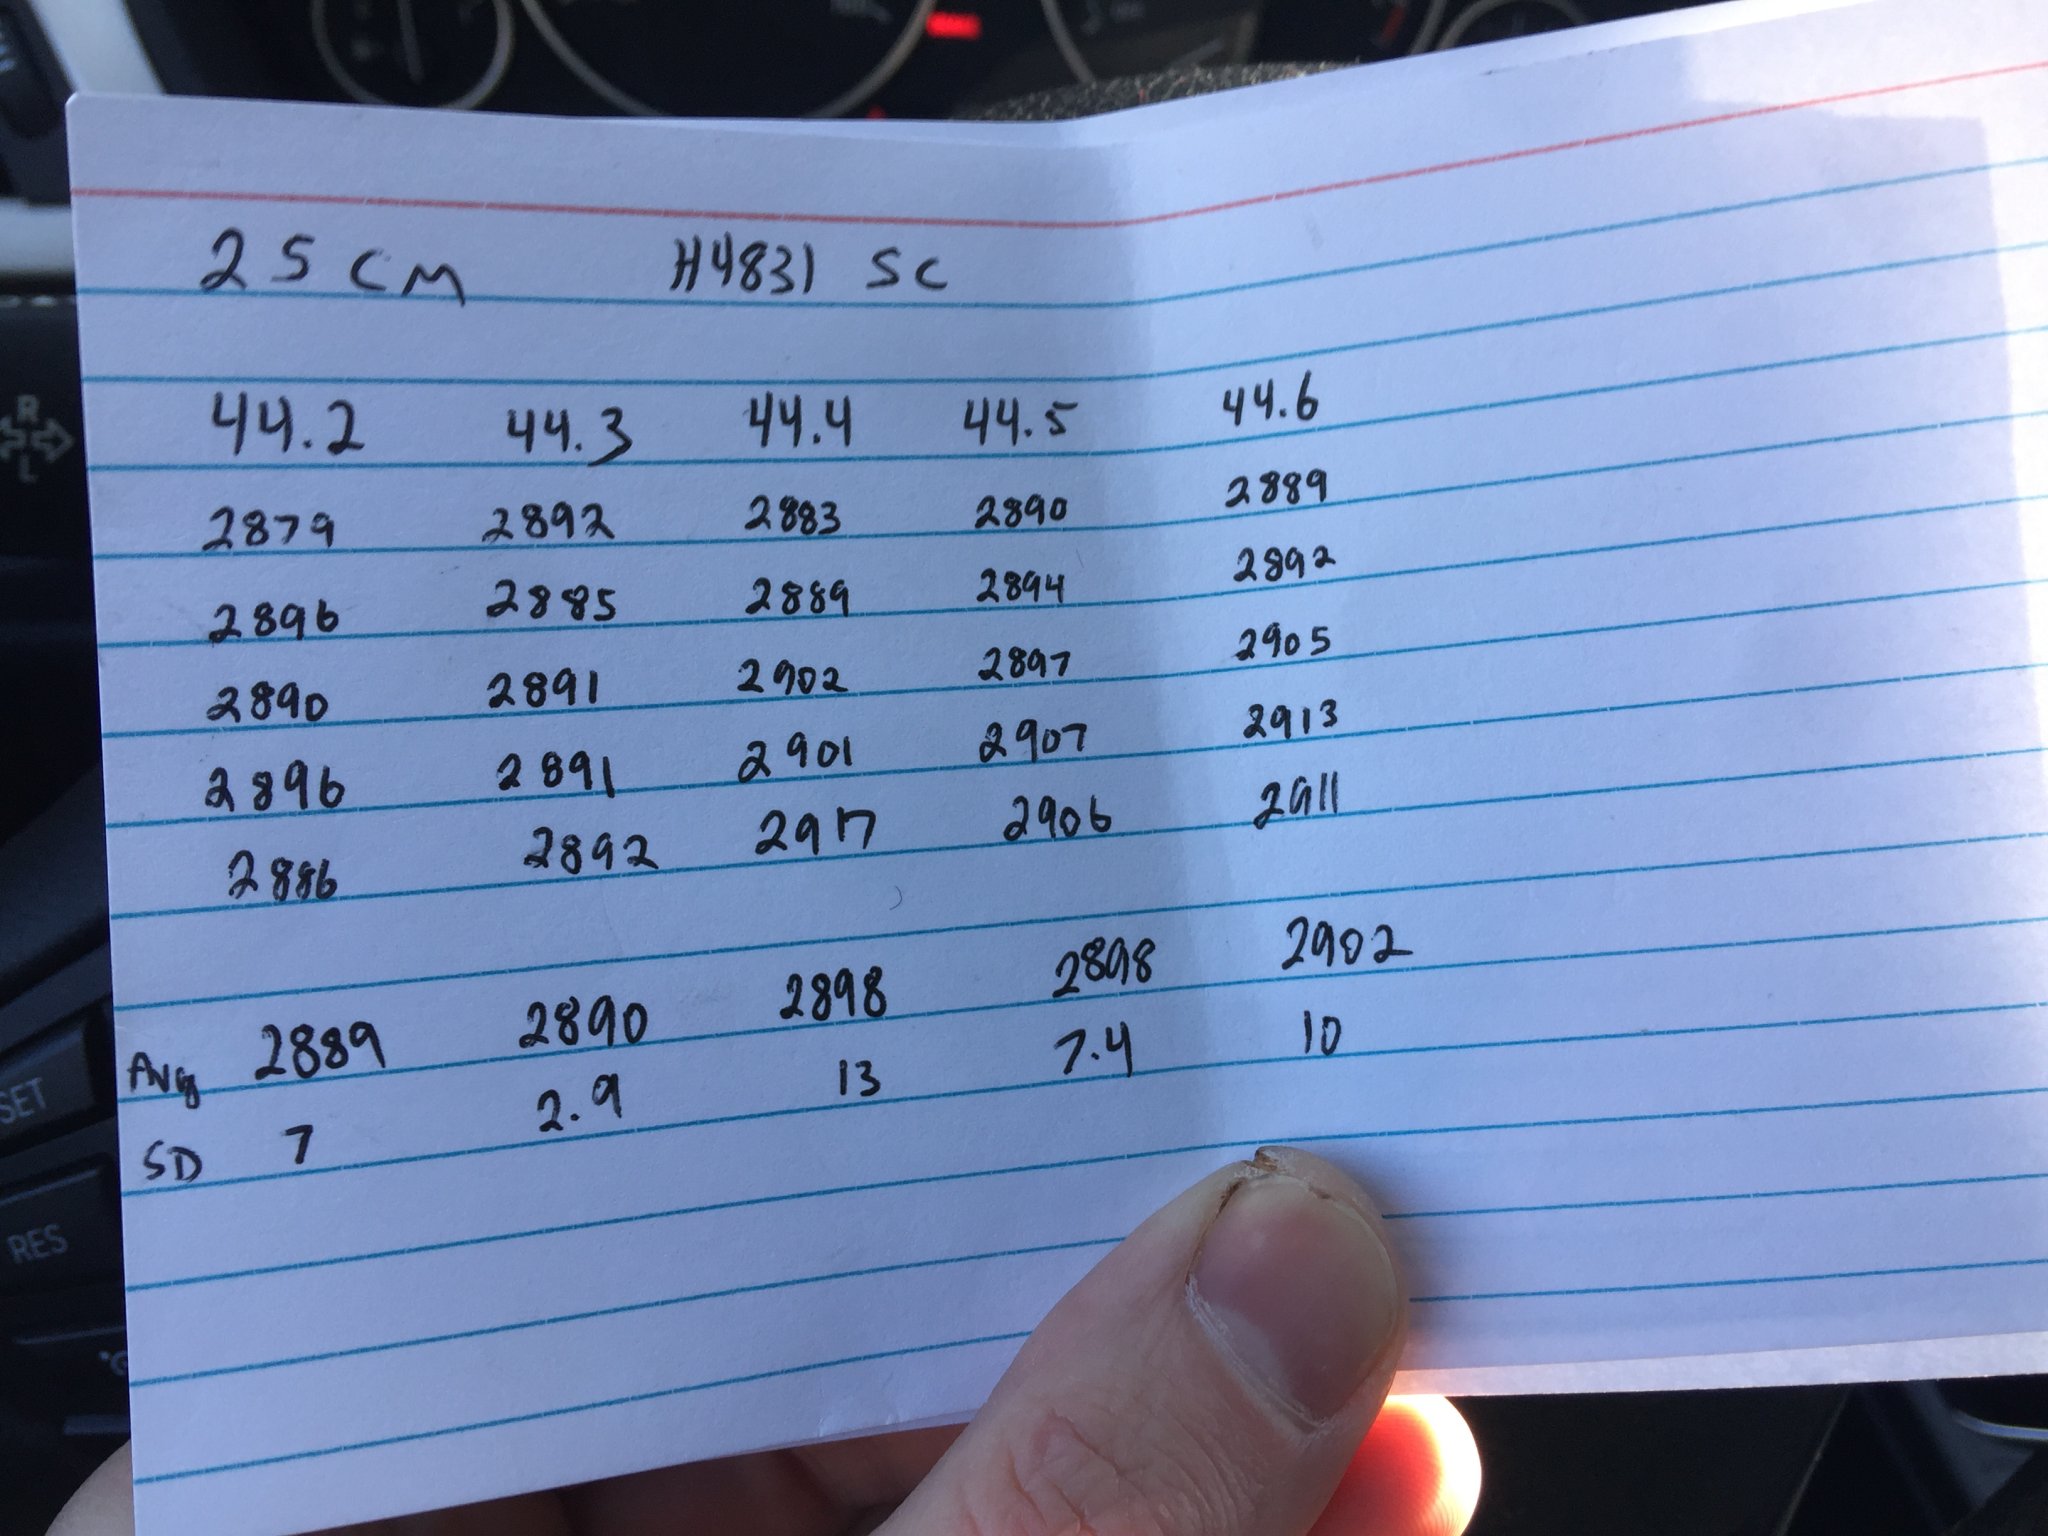 25 CM H4831 SC
44.2 44.3 44.4 44.5 44.6
2879 2892 2883 2890 2889
2896 2885 2889 2894 2892
2890 2891 2902 2897 2905
2896 2891 2901 2907 2913
2886 2892 2917 2906 2911
Avg 2889 2890 2898 2898 2902
SD 7 2.9 13 7.4 10
R
L
SET
RES